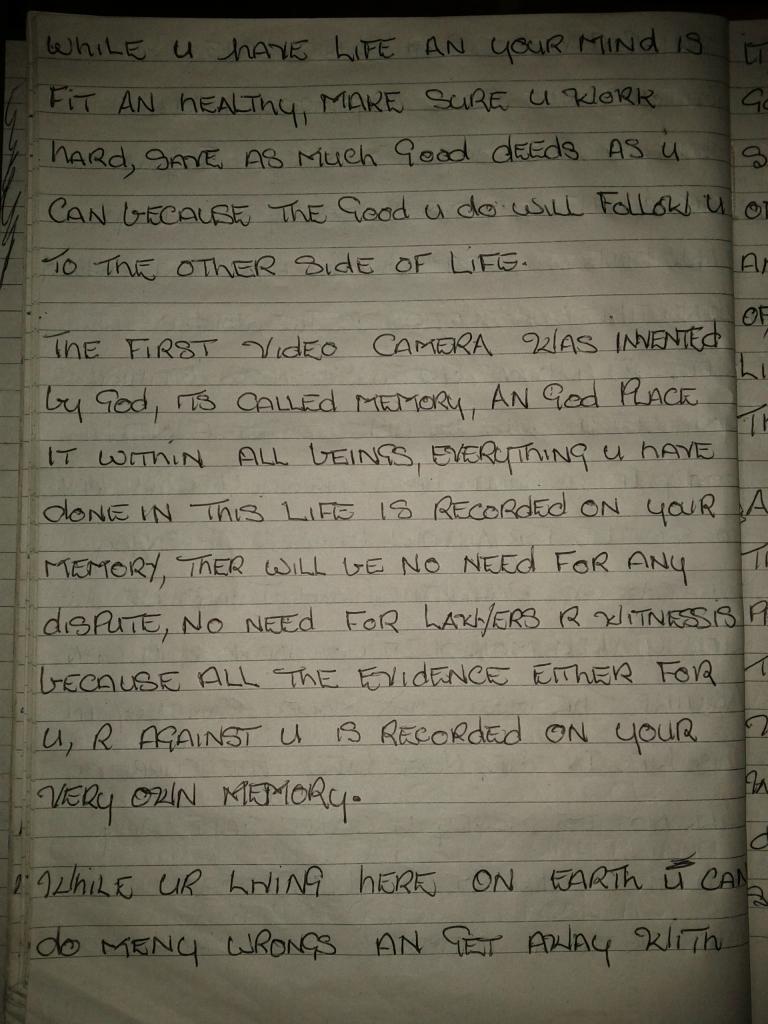 WHILE U HAVE LIFE AN YOUR MIND IS
FIT AN HEALTHY, MAKE SURE U WORK
HARD, SAVE AS MUCH GOOD DEEDS AS U
CAN BECAUSE THE GOOD U DO WILL FOLLOW U
TO THE OTHER SIDE OF LIFE.
THE FIRST VIDEO CAMERA WAS INVENTED
BY GOD, ITS CALLED MEMORY, AN GOD PLACE
IT WITHIN ALL BEINGS, EVERYTHING U HAVE
DONE IN THIS LIFE IS RECORDED ON YOUR
MEMORY, THER WILL BE NO NEED FOR ANY
DISPUTE, NO NEED FOR LAWYERS R WITNESSIS
BECAUSE ALL THE EVIDENCE EITHER FOR
U, R AGAINST U IS RECORDED ON YOUR
VERY OWN MEMORY.
WHILE UR LIVING HERE ON EARTH U CAN
DO MENY WRONGS AN GET AWAY WITH